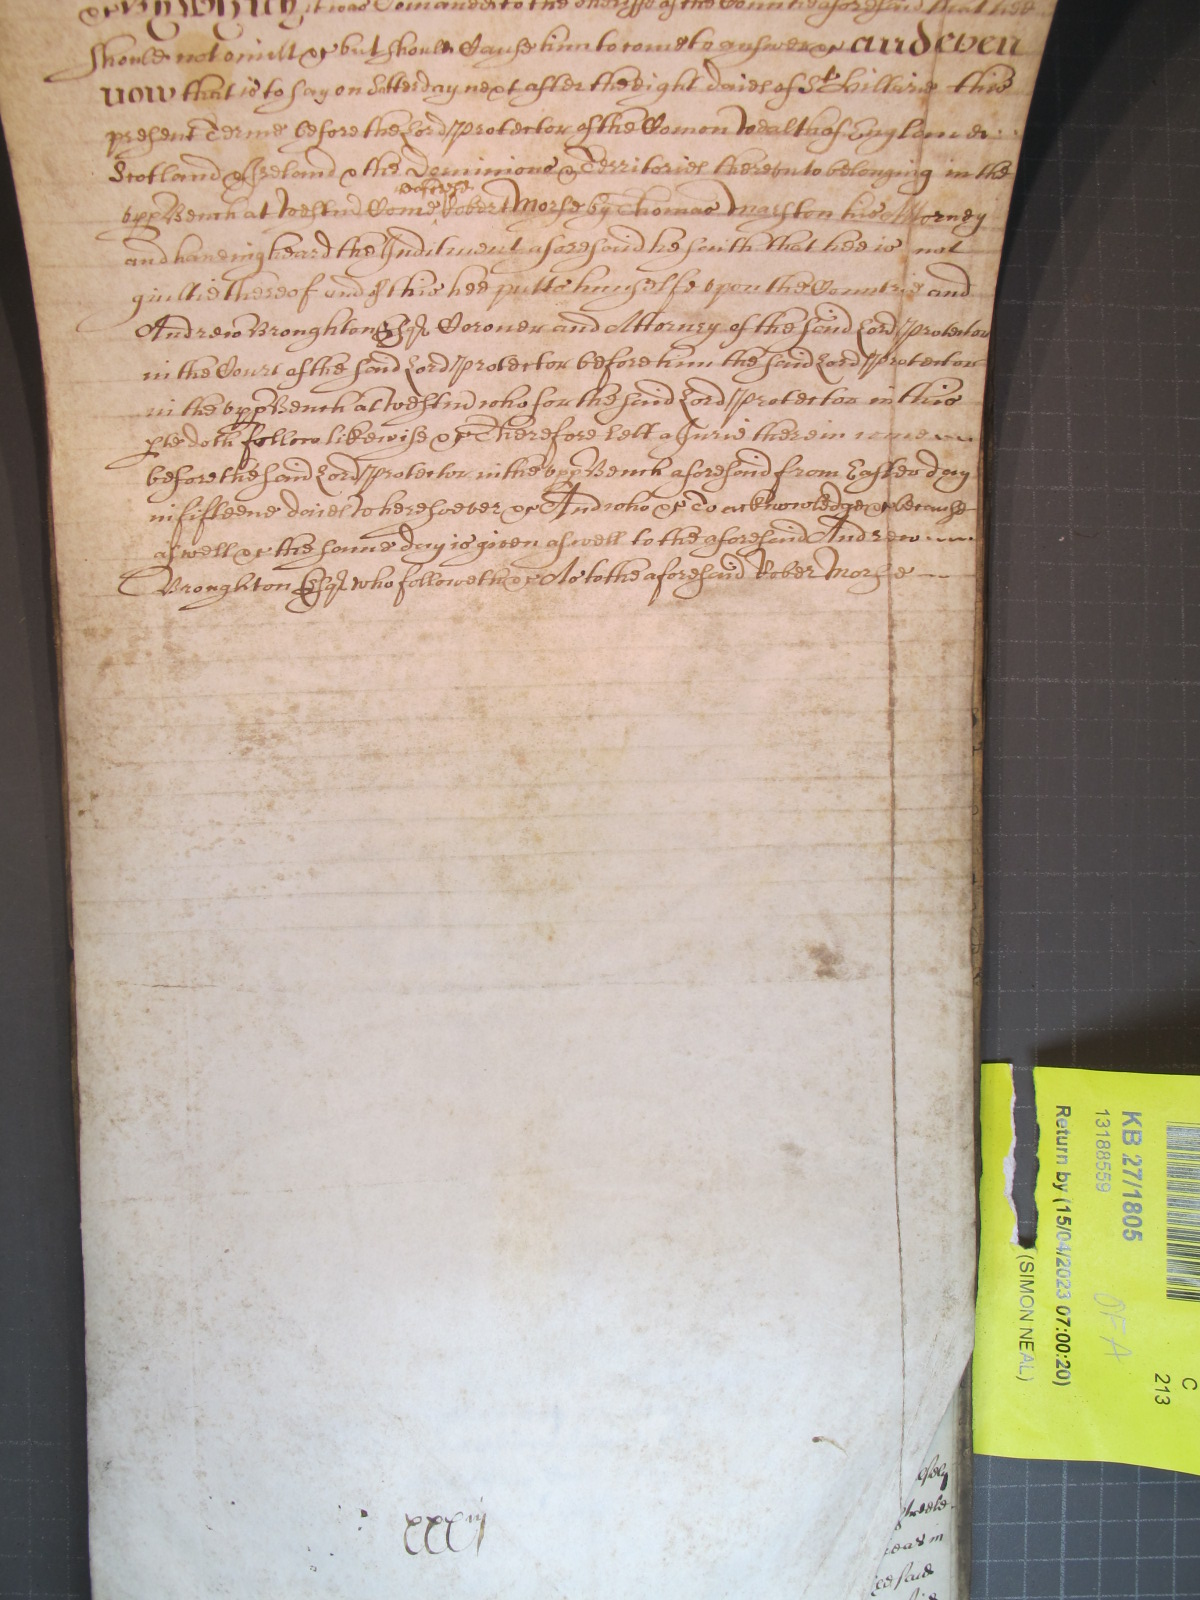 it was Comanded to the Sheriffe of the Countie aforesaid that hee
should not omitt &c but should Cause him to come to answer &c and even
now that is to say on Satterday next after the eight daies of St Hillarie this
present Terme before the Lord Protector of the Comon wealth of England
Scotland & Ireland & the Dominions & Territories thereunto belonging in the
upp Bench at Westm Come Robert Morse by Thomas Marston his Attorney
and haveing heard the Inditment aforesaid he saith that hee is not
guiltie thereof and of this hee putts himselfe upon the Countrie and
Andrew Broughton Esqr Coroner and Attorney of the said Lord Protector
in the Court of the said Lord Protector before him the said Lord Protector
in the upp Bench at Westm who for the said Lord Protector in this
pte doth follow likewise &c Therefore lett a Jurie therein come
before the said Lord Protector in the upp Bench aforesaid from Easter day
in fifteene daies wheresoever &c And who &c To acknowledge &c because
aswell &c the same day is given aswell to the aforesaid Andrew
Broughton Esqr who followeth &c As to the aforesaid Rober Morse
xxxiij
KB 27/1805
13188559
Return by (15/04/2023 07:00:20)
(SIMON NEAL)
OFA
C
213